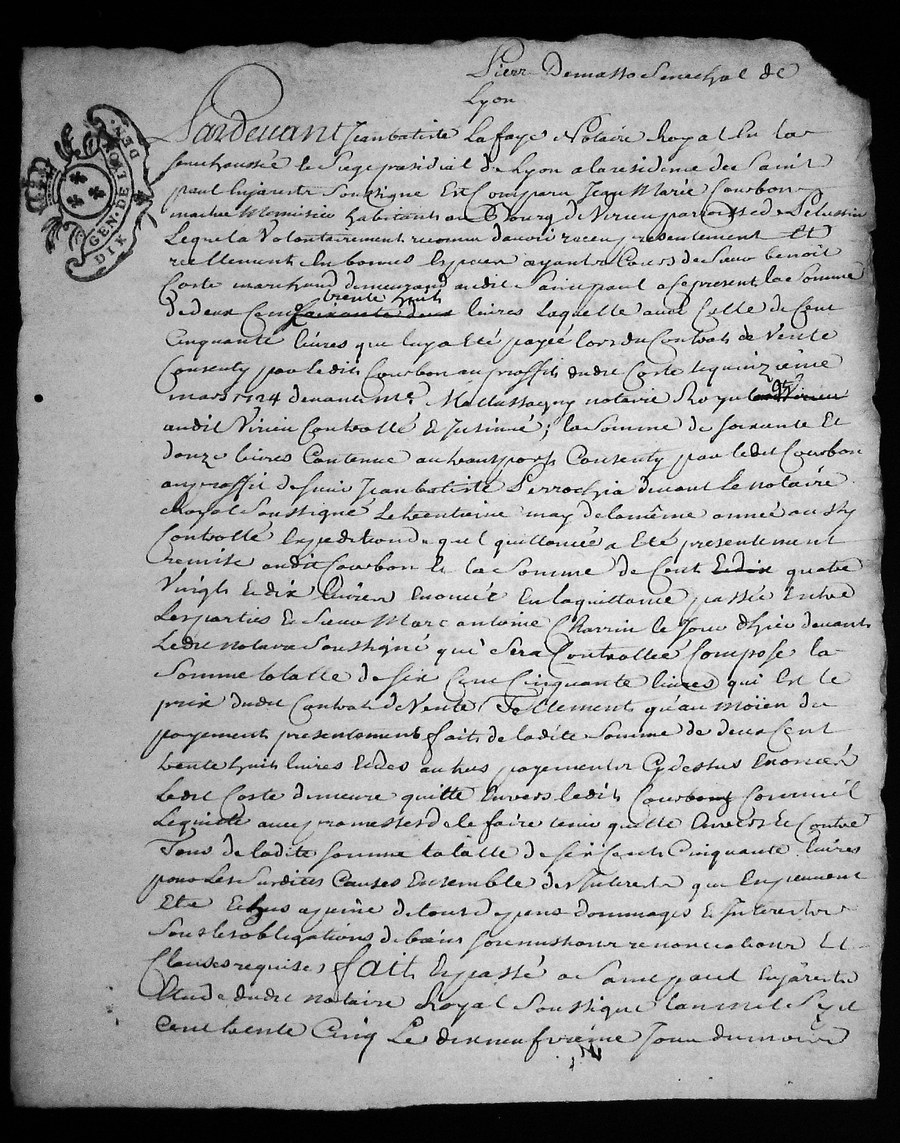 Pierre Demasso Senechal de
Lyon
GEN. DE LION
DEN.
DIX
Pardevant Jean batiste Lafaye Notaire Royal En la
senechaussée le Siege presidial de Lyon a la residence de Saint
paul En jarest Soussigne Est Comparu Jean Marie Courbon
maitre habitant au Bourg de Virieu parroisse de Pelussin
Lequel a Volontairement reconnu d'avoir receu presentement Et
reellement En bonnes Especes ayant Cours de Sieur benoit
Coste marchand demeurand audit Saint paul a ce present la Somme
trente huit
De deux Cent soixante deux livres laquelle avec Celle de Cent
Cinquante livres que luy a Eté payée lors du Contrat de Vente
Consenty par ledit Courbon au proffit dudit Coste le quinzieme
mars 1724 devant Me notaire Royal
audit Virieu Controllé & Insinué; la Somme de soixante Et
douze livres Contenue au Consenty par ledit Courbon
au proffit de Sieur Jean batiste Perrochia devant le notaire
Royal Soussigné le trentieme may de la même année aussy
Controllé Expedition de quel quittance a Eté presentement
remise audit Courbon & la Somme de Cent Et dix quatre
Vingts & dix livres Enoncée En la quittance passée Entre
Les parties & Sieur Marc antoine Charrin le Jour d'hier devant
Ledit notaire Soussigné qui Sera Controllée Compose la
Somme totalle de Six Cent Cinquante livres qui Est le
prix dudit Contrat de Vente, Tellement qu'au moïen du
payement presentement fait de ladite Somme de deux Cent
trente huit livres Et des autres payements Cy dessus Enoncés
Ledit Coste demeure quitte Envers ledit Courbon Comme il
Le quitte avec promesses de le faire tenir quitte Envers Et Contre
Tous de ladite Somme totalle de Six Cents Cinquante livres
pour les Susdites Causes Ensemble des Interests que En peuvent
Eté Echus a peine de tous depens dommages & Interests
Sous les obligations de biens soumissions renonciations Et
Clauses requises fait & passé a Saint paul En jarest
Etude dudit notaire Royal Soussigné l'an mil Sept
Cent trente Cinq Le dix neufvieme Jour du mois